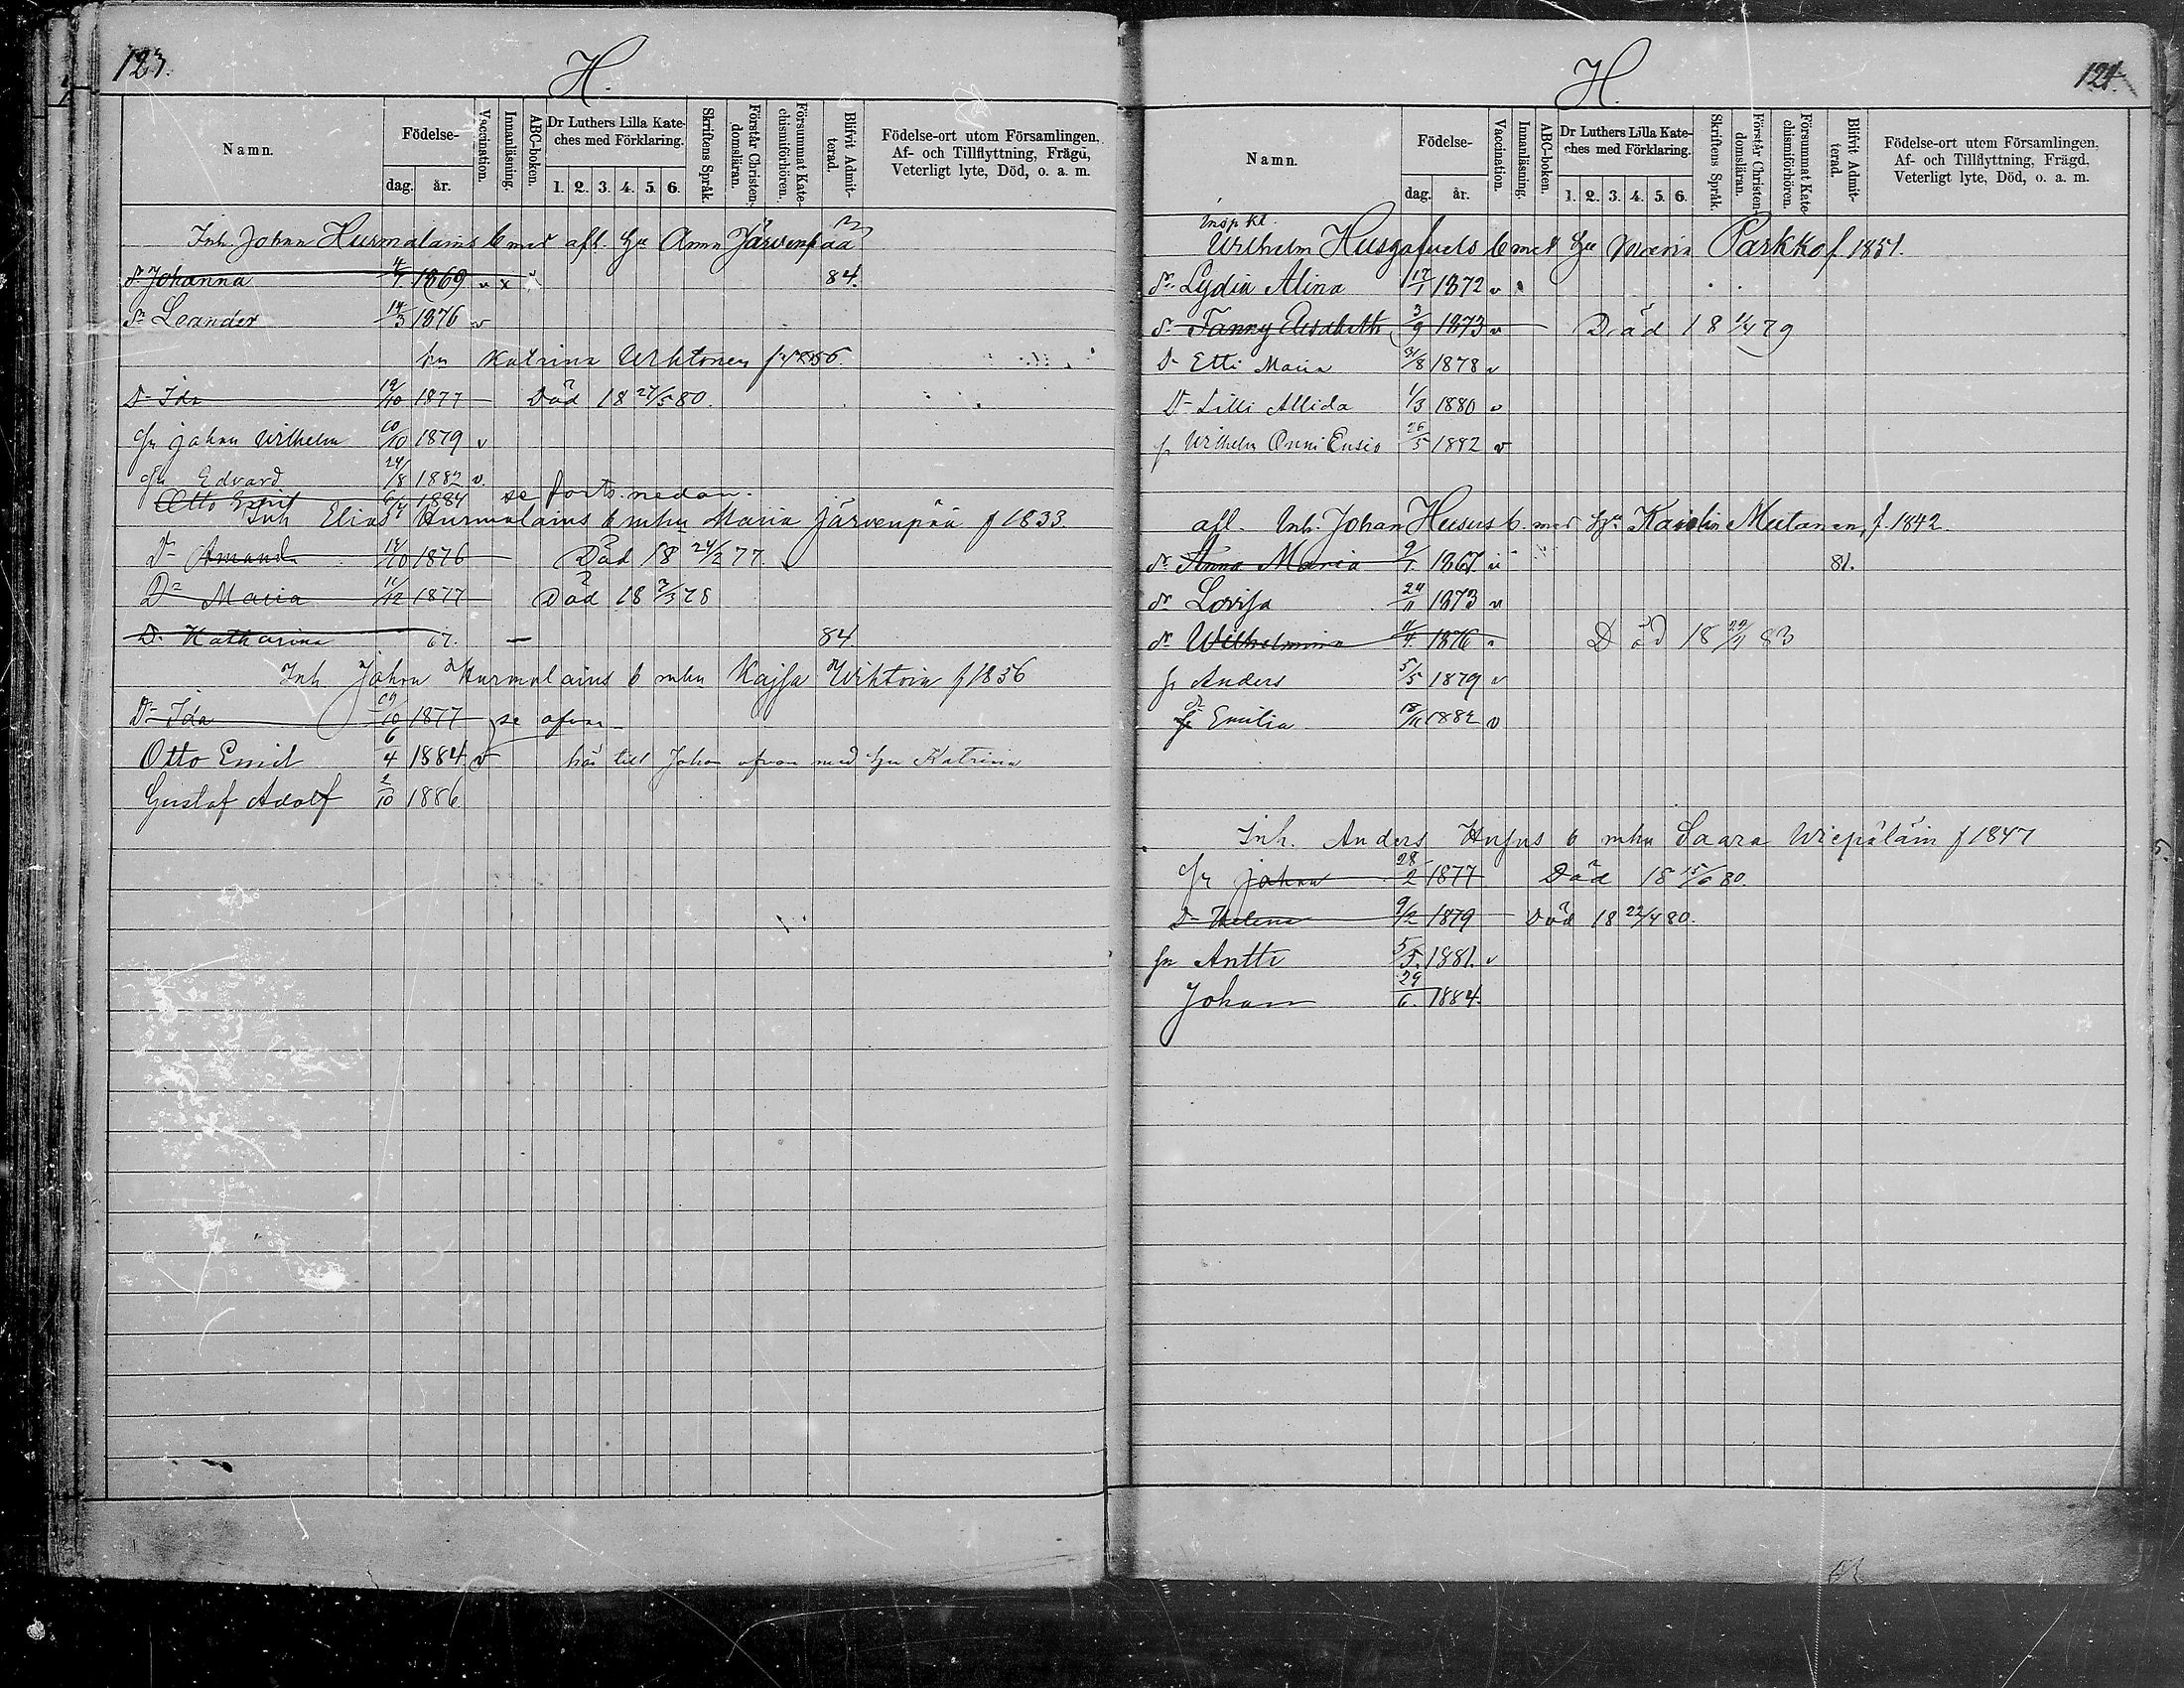 123.
H.
Namn.
Födelse-
dag. år.
Vaccination.
Innanläsning.
ABC-boken.
Dr Luthers Lilla Kate-
ches med Förklaring.
1. 2. 3. 4. 5. 6.
Skriftens Språk.
Förstår Christen-
domsläran.
Försummat Kate-
chismiförhören.
Blifvit Admit-
terad.
Födelse-ort utom Församlingen,
Af- och Tillflyttning, Frägd,
Veterligt lyte, Död, o. a. m.
Inh. Johan Hurmalains b med afl. hu Anna Järvenpää
Dr Johanna 4/7 1869 v x 84.
Sn Leander 14/3 1876 v
hu Katrina Uhtonen f. 1856.
Dr Ida 19/10 1877 Död 18 27/5 80.
Sn Johan Wilhelm 10/10 1879 v
Sn Edvard 24/8 1882 v.
Otto Emil 6/4 1884 se forts. nedan.
Inh Elias Hurmalains b mhu Maria Järvenpää f 1833.
Dr Amanda 14/10 1876 Död 18 24/2 77.
Dr Maria 11/12 1877 Död 18 7/3 78
D. Katharina 67. — 84.
Inh Johan Hurmalains b mhu Kajsa Uhtoin f 1856
Dr Ida 19/10 1877 se ofvan
Otto Emil 6/4 1884. v hör till Johan ofvan med hu Katrina
Gustaf Adolf 2/10 1886
124.
H.
Namn.
Födelse-
dag. år.
Vaccination.
Innanläsning.
ABC-boken.
Dr Luthers Lilla Kate-
ches med Förklaring.
1. 2. 3. 4. 5. 6.
Skriftens Språk.
Förstår Christen-
domsläran.
Försummat Kate-
chismiförhören.
Blifvit Admit-
terad.
Födelse-ort utom Församlingen,
Af- och Tillflyttning, Frägd,
Veterligt lyte, Död, o. a. m.
Insp kt.
Wilhelm Husgafvels b med hu Maria Parkko f. 1851.
Dr Lydia Alina 12/1 1872 v
Dr Fanny Elisabeth 3/9 1873 v Död 18 1/4 79
Dr Etti Maria 31/8 1878 v
Dr Lilli Allida 1/3 1880 v
p Wilhelm Onni Ensio 26/5 1882 v
afl. Inh. Johan Husus b. med hu Karolin Mutanen, f. 1842.
Dr Anna Maria 9/1. 1867. v 81.
Dr Lovisa 24/11 1873 v
Dr Wilhelmina 11/4. 1876 Död 18 29/4 83
p Anders 5/5 1879 v
Dr Emilia 18/11 1882 v
Inh. Anders Husus b mhu Saara Wiepäläin f 1847
Sn Johan 28/2 1877 Död 18 15/6 80.
Dr Helena 9/2 1879 Död 18 22/4 80.
Sn Antti 5/5. 1881. v
Johan 29/6. 1884.